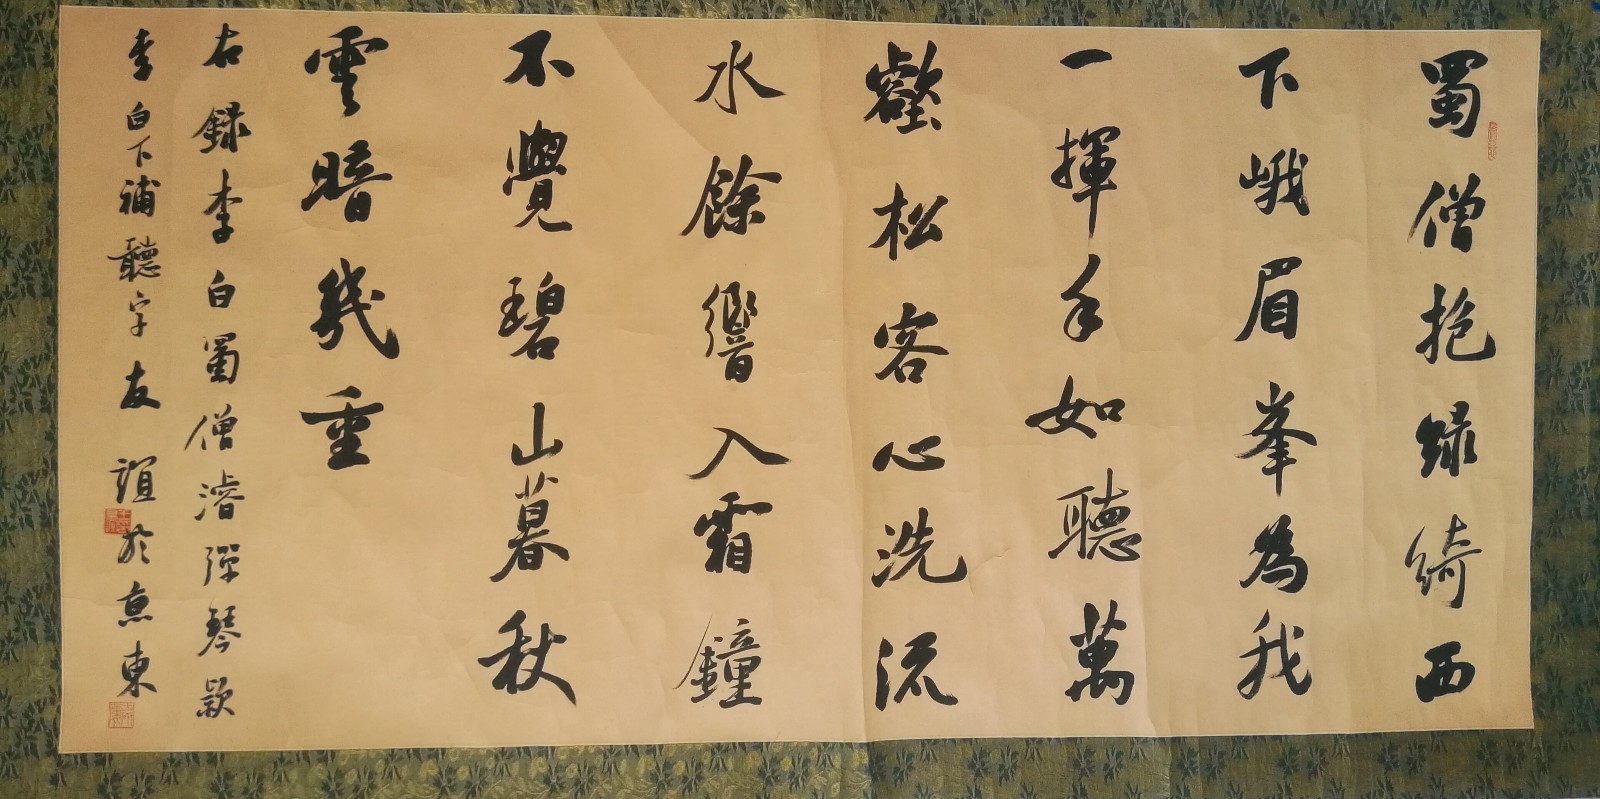 蜀僧抱緑綺西
下峨眉峯為我
一揮手如聽萬
壑松客心洗流
水餘響入霜鐘
不覺碧山暮秋
雲暗幾重
右録李白蜀僧濬彈琴款
李白下補聽字友誼於京東